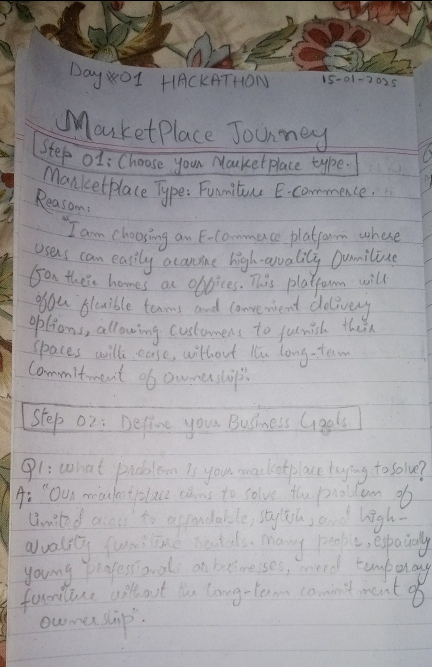 Day #01 HACKATHON 15-01-2025
MarketPlace Journey
Step 01: Choose your Marketplace type.
Marketplace Type: Furniture E-Commerce.
Reason:
"I am choosing an E-Commerce platform where
users can easily acquire high-quality furniture
for their homes or offices. This platform will
offer flexible terms and convenient delivery
options, allowing customers to furnish their
spaces with ease, without the long-term
commitment of ownership".
Step 02: Define your Business Goals.
Q1: what problem is your marketplace trying to solve?
A: "Our marketplace aims to solve the problem of
limited access to affordable, stylish, and high-
quality furniture rentals. Many people, especially
young professionals or businesses, need temporary
furniture without the long-term commitment of
ownership".